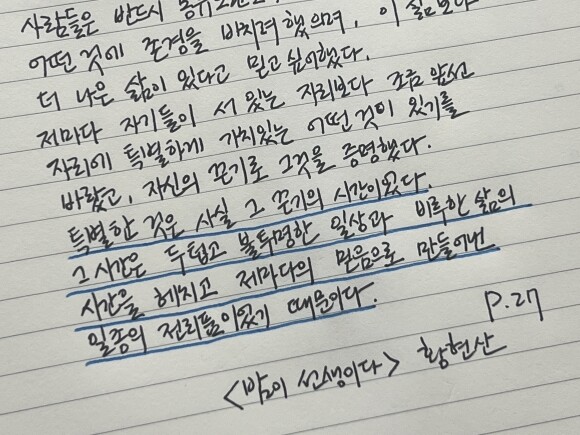 사람들은 반드시
어떤 것에 존경을 바치려 했으며, 이 삶보다
더 나은 삶이 있다고 믿고 싶어했다.
저마다 자기들이 서 있는 자리보다 조금 앞선
자리에 특별하게 가치있는 어떤 것이 있기를
바랐고, 자신의 끈기로 그것을 증명했다.
특별한 것은 사실 그 끈기의 시간이었다.
그 시간은 두텁고 불투명한 일상과 비루한 삶의
시간을 헤치고 저마다의 믿음으로 만들어낸
일종의 전리들이었기 때문이다.
P.27
<밤이 선생이다> 황현산